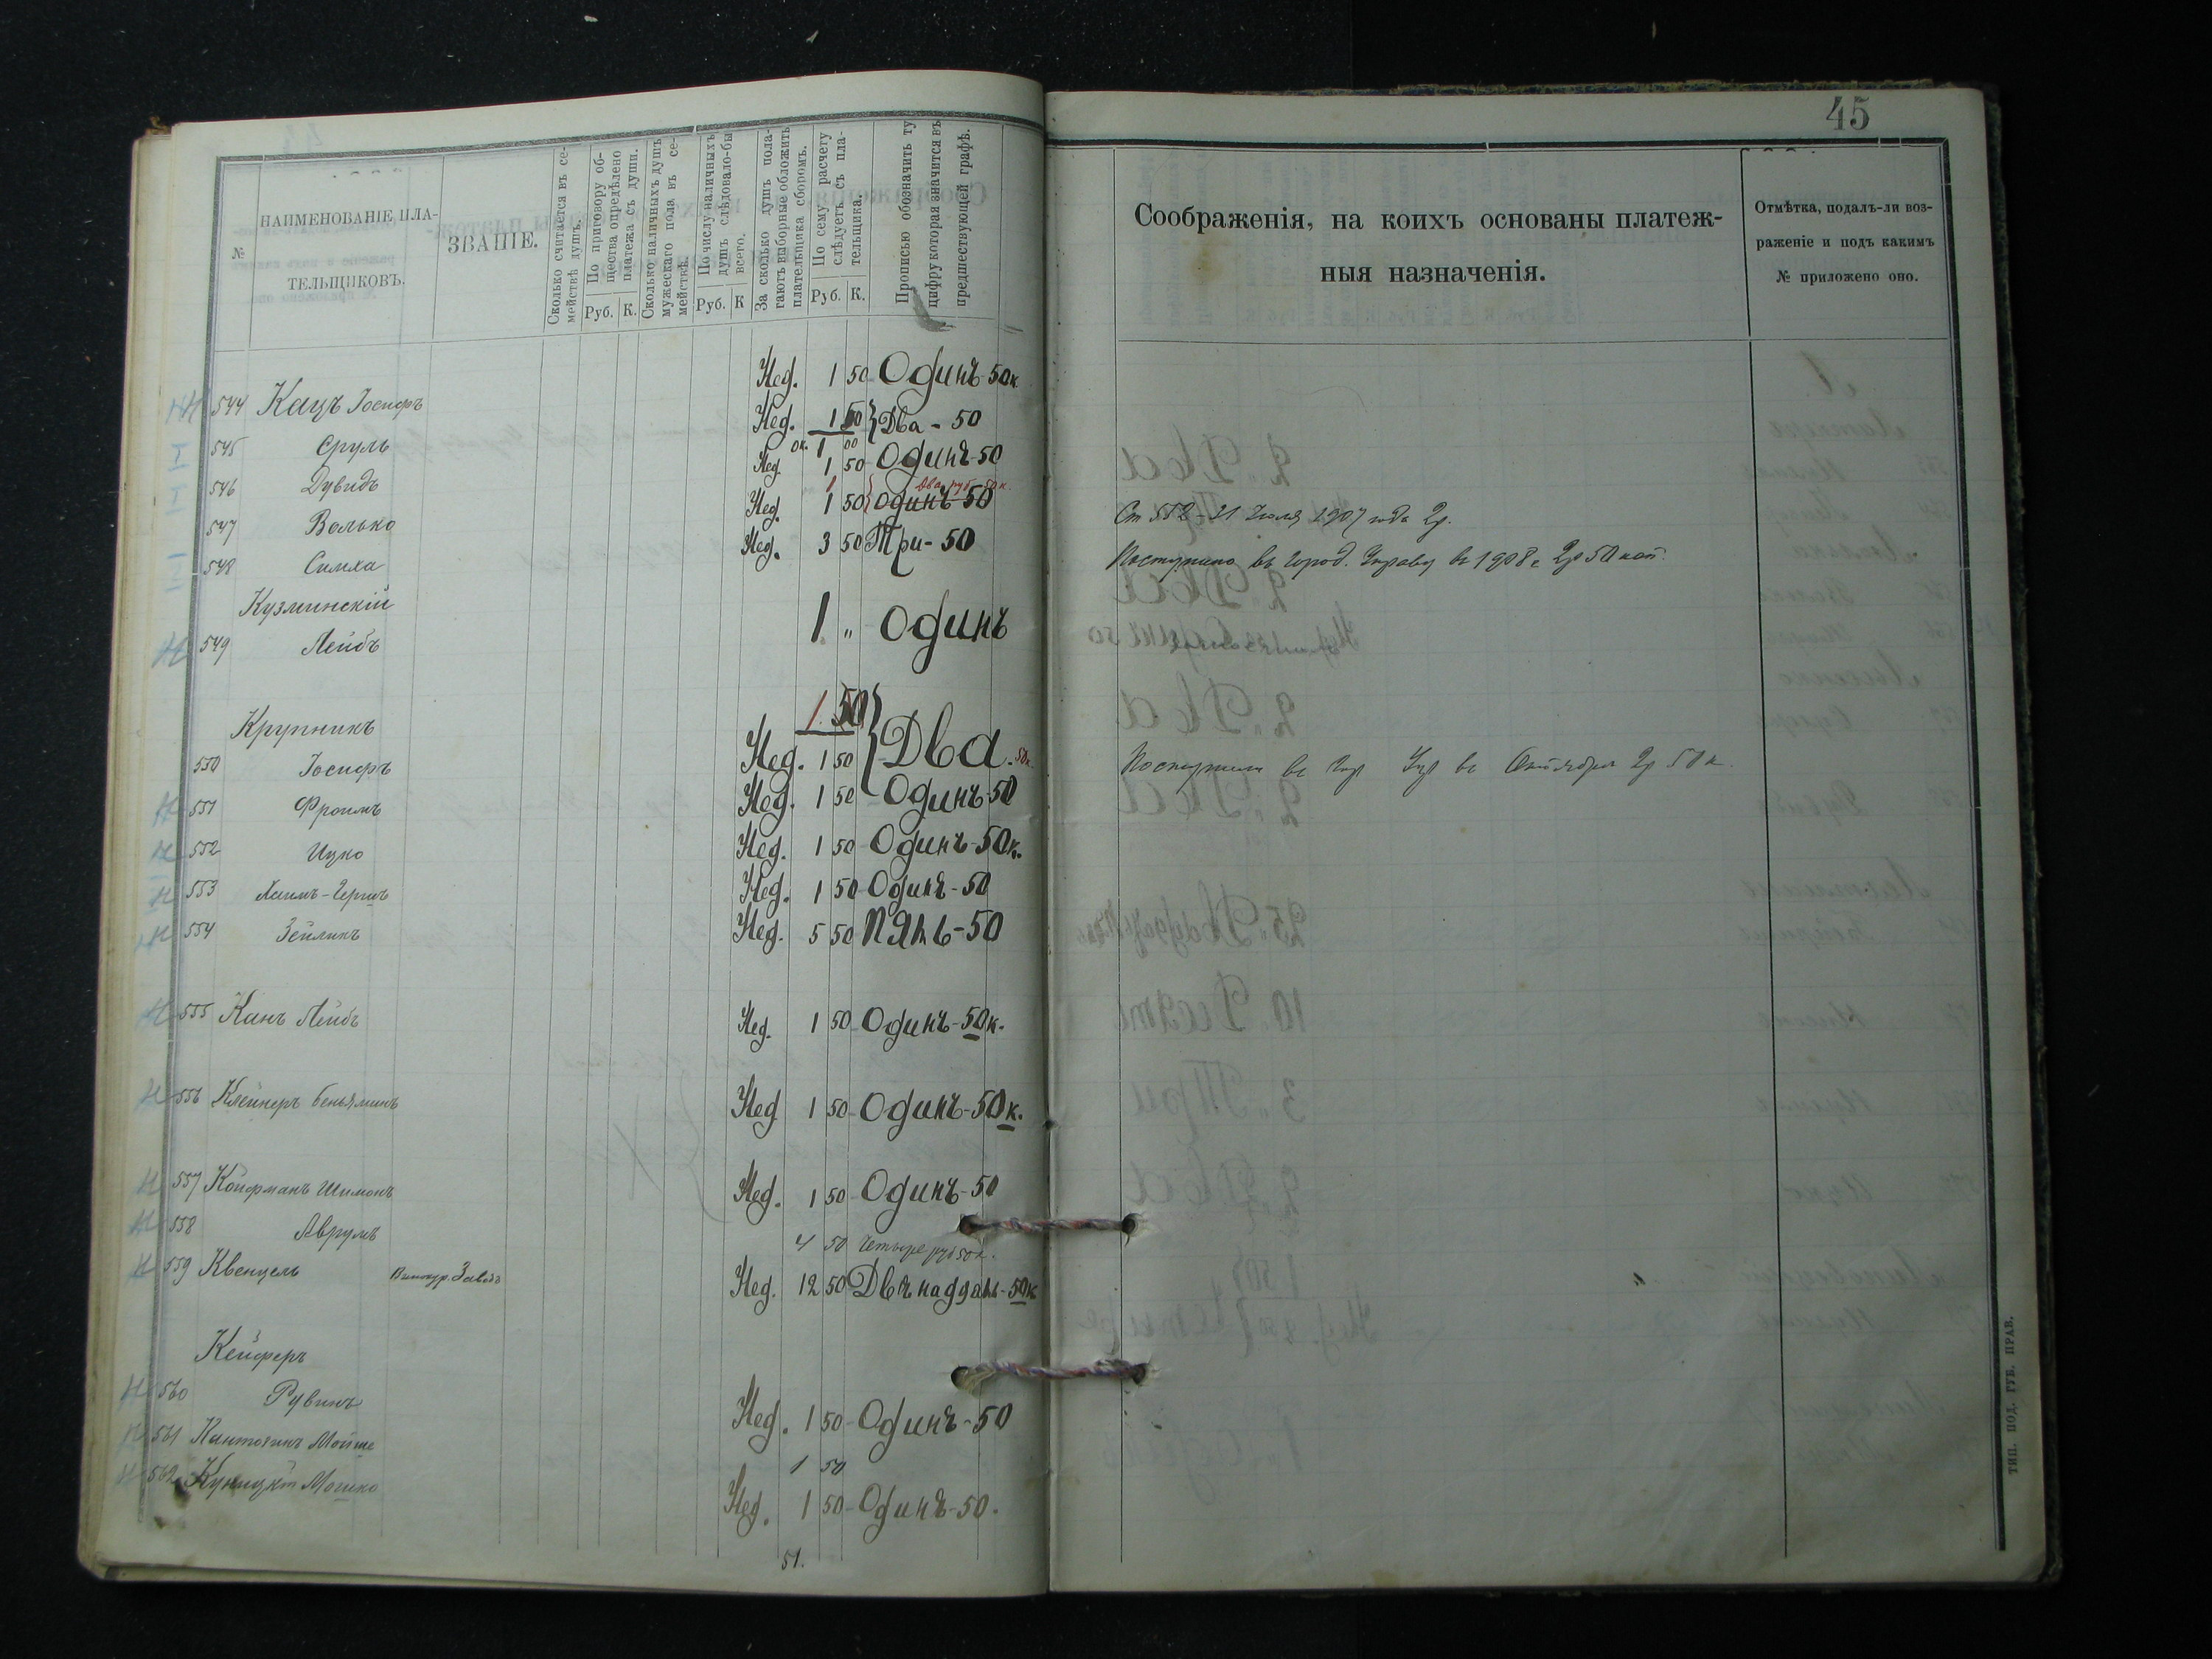 45
№
НАИМЕНОВАНІЕ ПЛА-
ТЕЛЬЩИКОВЪ.
ЗВАНІЕ.
Сколько считается въ се-
мействѣ душъ.
По приговору об-
щества опредѣлено
платежа съ души.
Руб. К.
Сколько наличныхъ душъ
мужескаго пола въ се-
мействѣ.
По числу наличныхъ
душъ слѣдовало-бы
всего.
Руб. К
За сколько душъ пола-
гаютъ выборные обложить
плательщика сборомъ.
По сему расчету
слѣдуетъ съ пла-
тельщика.
Руб. К.
Прописью обозначить ту
цифру которая значится въ
предшествующей графѣ.
Соображенія, на коихъ основаны платеж-
ныя назначенія.
Отмѣтка, подалъ-ли воз-
раженіе и подъ какимъ
№ приложено оно.
544 Кацъ Іосифъ Нед. 1 50 Одинъ-50к.
545 Сруль Нед. 1 50 Два-50
ок. 1 00
546 Дувидъ Нед. 1 50 Одинъ-50
Два руб. 50к.
547 Волько Нед. 1 50 Одинъ-50 21 Іюля 1907 года 2р.
548 Симха Нед. 3 50 Три-50 Поступило въ Город. Управу въ 1908 г. 2р 50 коп.
Кузминскій
549 Лейбъ 1 " Одинъ
Крупникъ 1. 50
550 Іосифъ Нед. 1 50 Два.50к. въ Октября 2р 50 к.
551 Фроимъ Нед. 1 50 Одинъ-50
552 Ицко Нед. 1 50 Одинъ-50к.
553 Хаимъ-Гершъ Нед. 1 50 Одинъ-50
554 Зейликъ Нед. 5 50 Пять-50
555 Канъ Лейбъ Нед. 1 50 Одинъ-50к.
556 Клейнеръ Беньяминъ Нед 1 50 Одинъ-50к.
557 Койфманъ Шимонъ Нед. 1 50 Одинъ-50
558 Аврумъ 4 50 Четыре руб 50к.
559 Квенцель Винокур. Заводъ Нед. 12 50 Двѣнаддать-50к
Кейферъ
560 Рувинъ Нед. 1 50 Одинъ-50
561 Мойше 1 50
562 Мошко Нед. 1 50 Одинъ-50.
51.
ТИП. ПОД. ГУБ. ПРАВ.